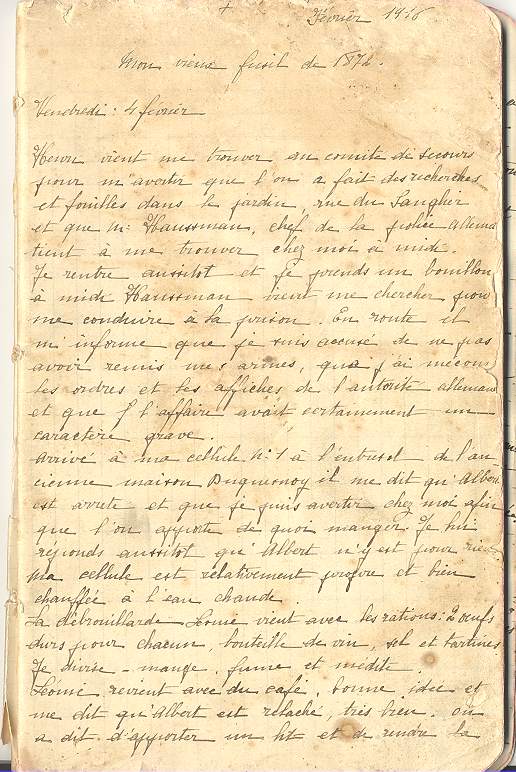 Février 1916
Mon vieux fusil de 1872.
Vendredi: 4 février
Henri vient me trouver au comité de secours
pour m'avertir que l'on a fait des recherches
et fouilles dans le jardin, rue du Sanglier
et que Mr Haussman, chef de la police allema
tient à me trouver chez moi à midi.
Je rentre aussitot et je prends un bouillon
à midi Haussman vient me chercher pour
me conduire à la prison. En route il
m'informe que je suis accusé de ne pas
avoir remis mes armes, que j'ai méconnu
les ordres et les affiches de l'autorité alleman
et que l'affaire avait certainement un
caractère grave.
Arrivé à ma cellule No 1 à l'entresol de l'an
cienne maison Duquesnoy il me dit qu'Albert
est arrêté et que je puis avertir chez moi afin
que l'on apporte de quoi manger. Je lui
réponds aussitot qu'Albert n'y est pour rien.
Ma cellule est relativement propre et bien
chauffée à l'eau chaude
La débrouillarde Léonie vient avec les rations: 2 oeufs
durs pour chacun, bouteille de vin, sel et tartines
Je divise - mange, fume et médite.
Léonie revient avec du café, bonne idée et
me dit qu'Albert est relaché, très bien. on
a dit d'apporter un lit et de rendre la